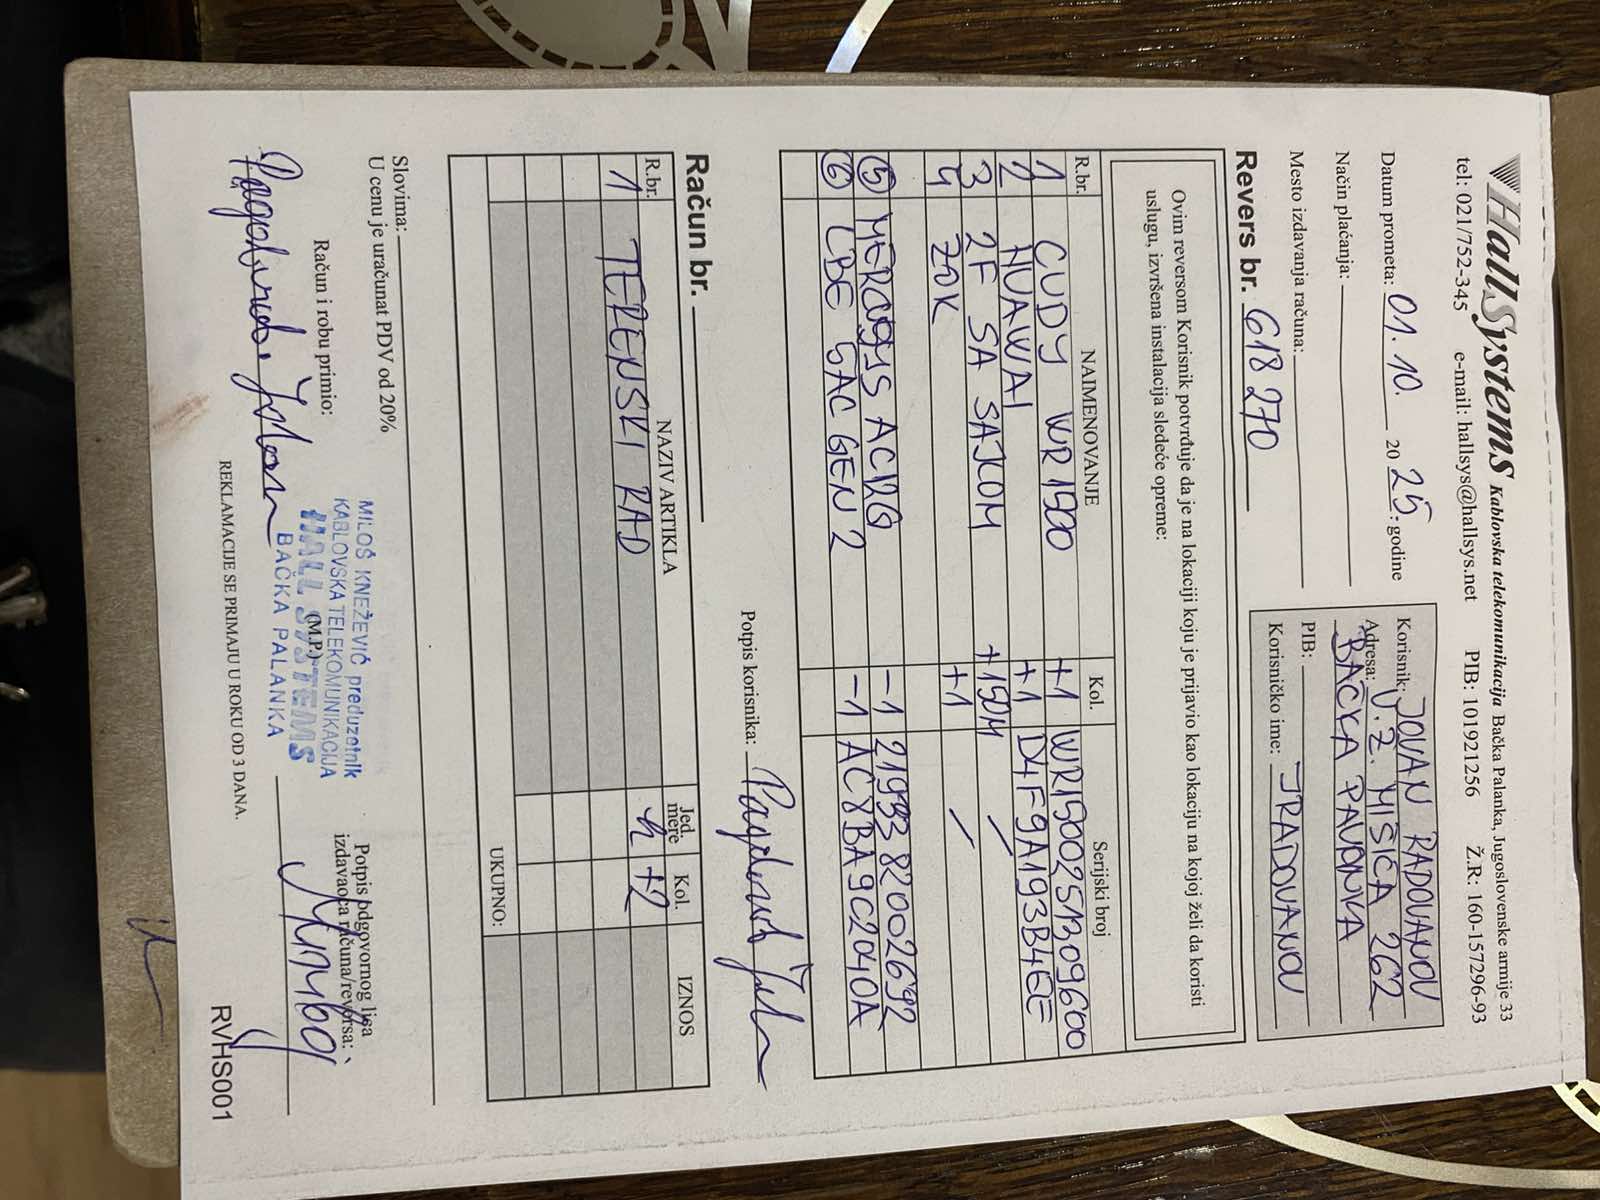 HallSystems Kablovska telekomunikacija Bačka Palanka, Jugoslovenske armije 33
tel: 021/752-345 e-mail: hallsys@hallsys.net PIB: 101921256 Ž.R: 160-157296-93
Datum prometa: 01.10. 2025. godine
Način plaćanja:
Mesto izdavanja računa:
Korisnik: JOVAN RADOVANOV
Adresa: V. Ž. MIŠIĆA 262
BAČKA PALANKA
PIB:
Korisničko ime: JRADOVANOV
Revers br. 618 270
Ovim reversom Korisnik potvrđuje da je na lokaciji koju je prijavio kao lokaciju na kojoj želi da koristi
uslugu, izvršena instalacija sledeće opreme:
R.br. NAIMENOVANJE Kol. Serijski broj
1 CUDY WR1500 +1 WR1500251309600
2 HUAWAI +1 D4F9A193B4EE
3 2F SA SAJLOM +150M /
4 ZOK +1 /
5 MERCUSYS AC12G -1 2193382002692
6 LBE 5AC GEN 2 -1 AC8BA9C2040A
Potpis korisnika:
Račun br.
R.br. NAZIV ARTIKLA Jed. mere Kol. IZNOS
1 TERENSKI RAD h +2
UKUPNO:
Slovima:
U cenu je uračunat PDV od 20%
Račun i robu primio:
(M.P.)
Potpis odgovornog lica
izdavaoca računa/reversa:
MILOŠ KNEŽEVIĆ preduzetnik
KABLOVSKA TELEKOMUNIKACIJA
HALL SYSTEMS
BAČKA PALANKA
REKLAMACIJE SE PRIMAJU U ROKU OD 3 DANA.
RVHS001